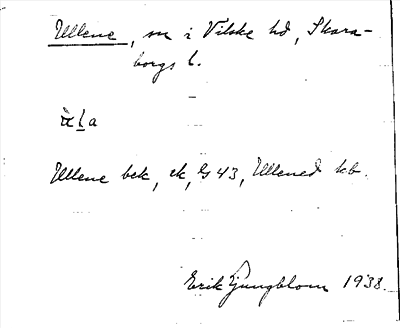 Ullene, sn i Vilske hd, Skara-
borgs l.
ὰḷa
Ullene bek, ek, G 43, Ullened kb.
Erik Ljungblom 1938.